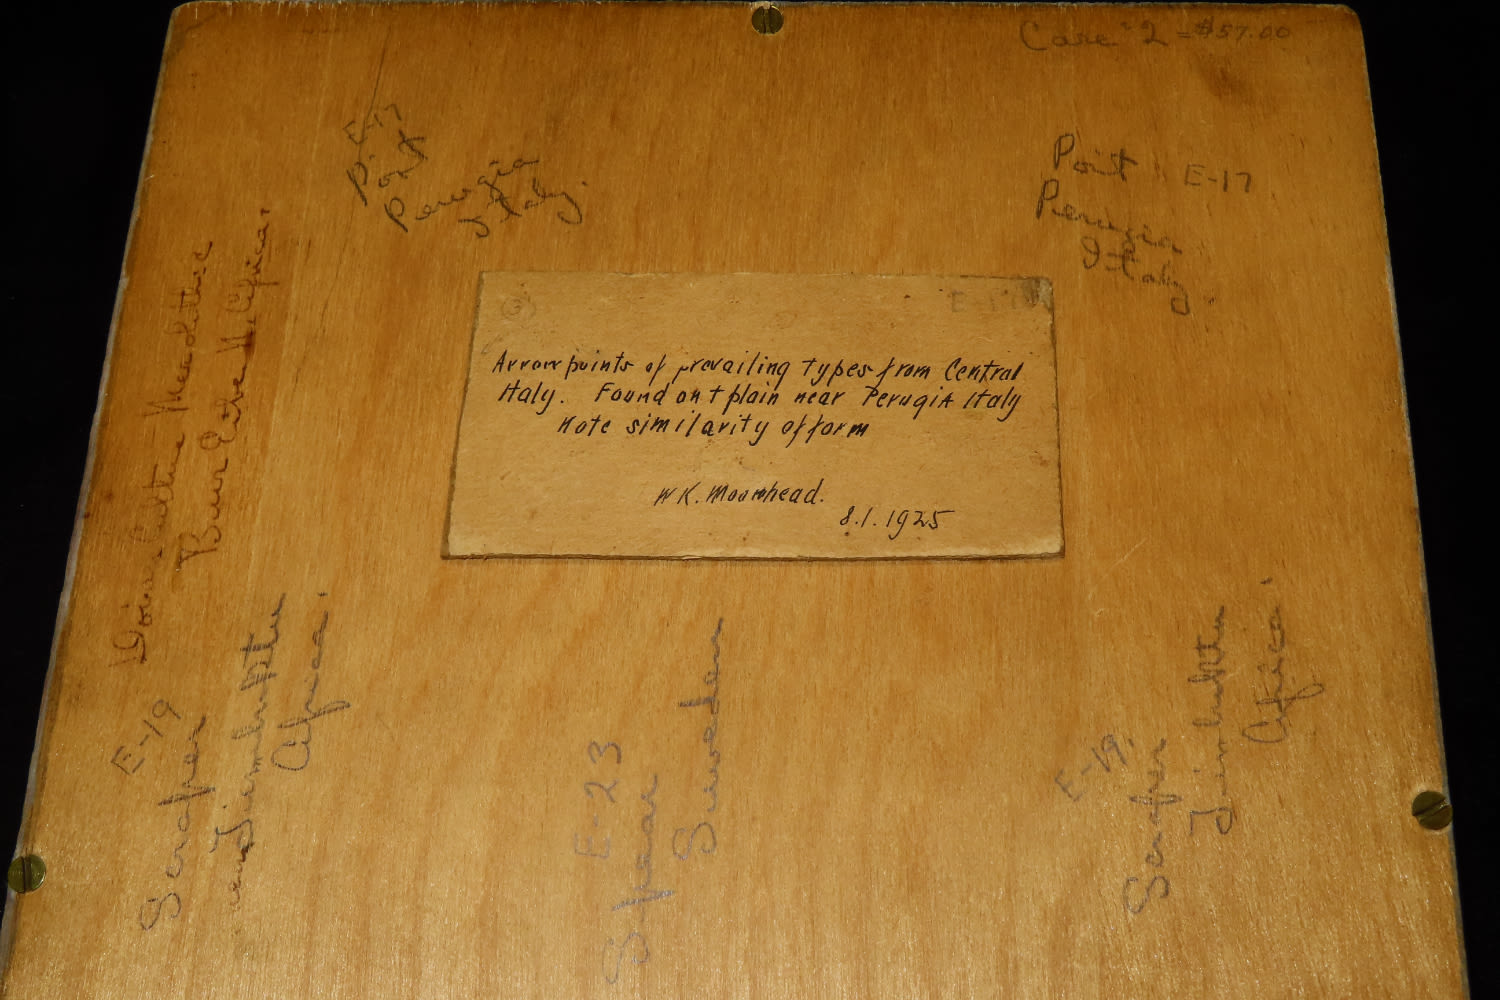 Case #2 = $57.00
E-17
Point
Perugia
Italy.
Point E-17
Perugia
Italy
E-17
Arrowpoints of prevailing types from Central
Italy. Found on t plain near Perugia Italy
Note similarity of form
W K. Moorehead.
8.1.1925
Culture Neolithic
N. Africa.
E-19
Scraper
near Timbuktu
Africa.
E-23
Spear
Sweden
E-19.
Scraper
Timbuktu
Africa.